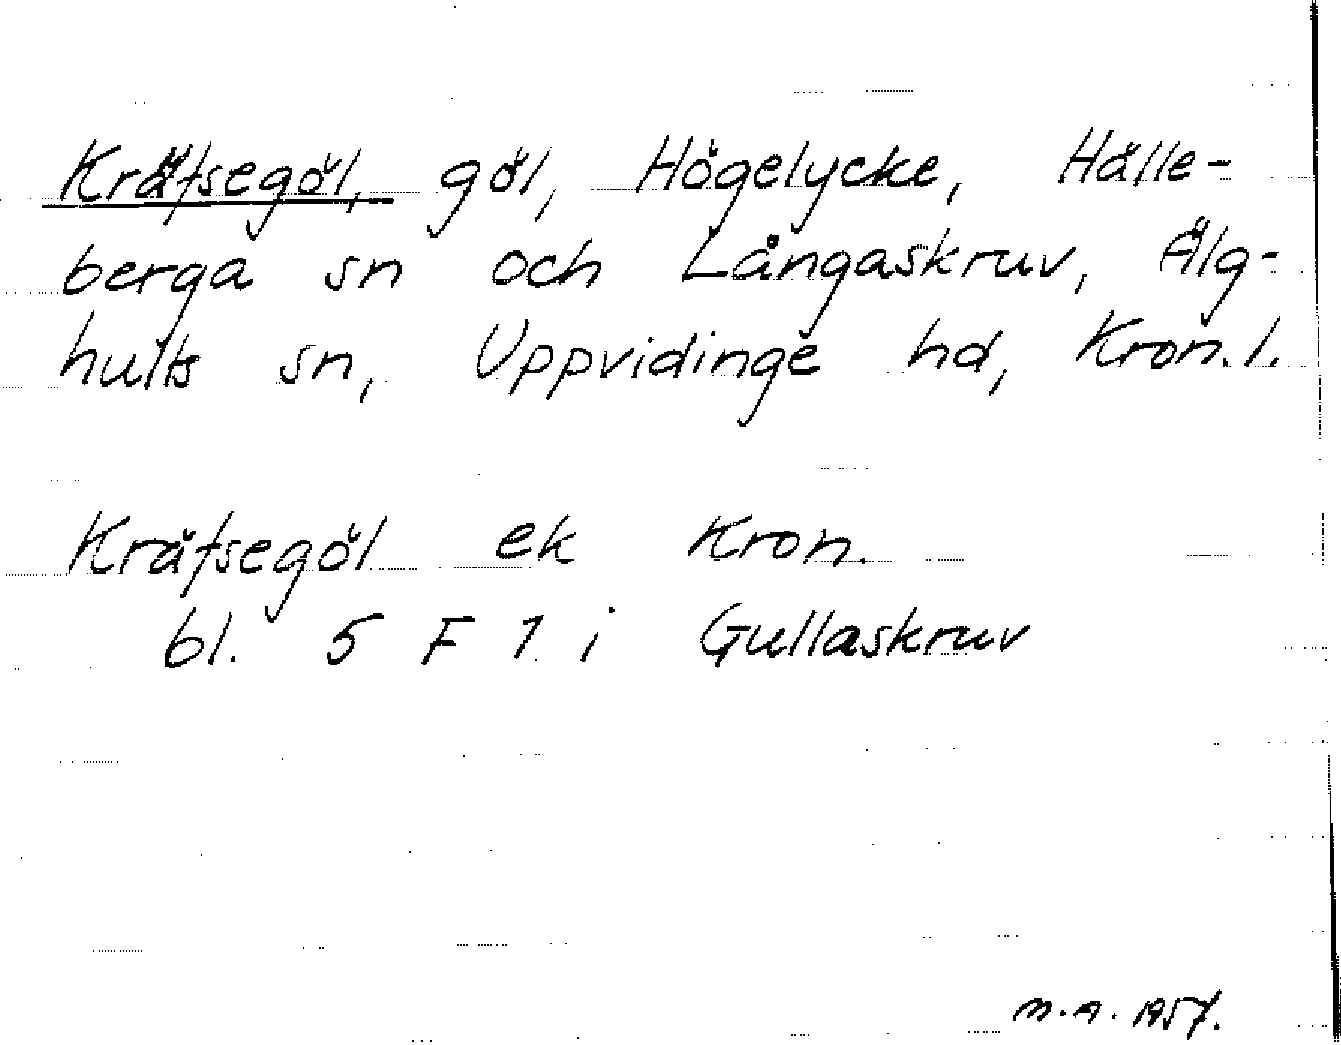 Kräfsegöl, göl, Högelycke, Hälle-
berga sn och Långaskruv, Älg-
hults sn, Uppvidinge hd, Kron. l.
Kräfsegöl ek Kron.
bl. 5 F 1 i Gullaskruv
M.A. 1957.